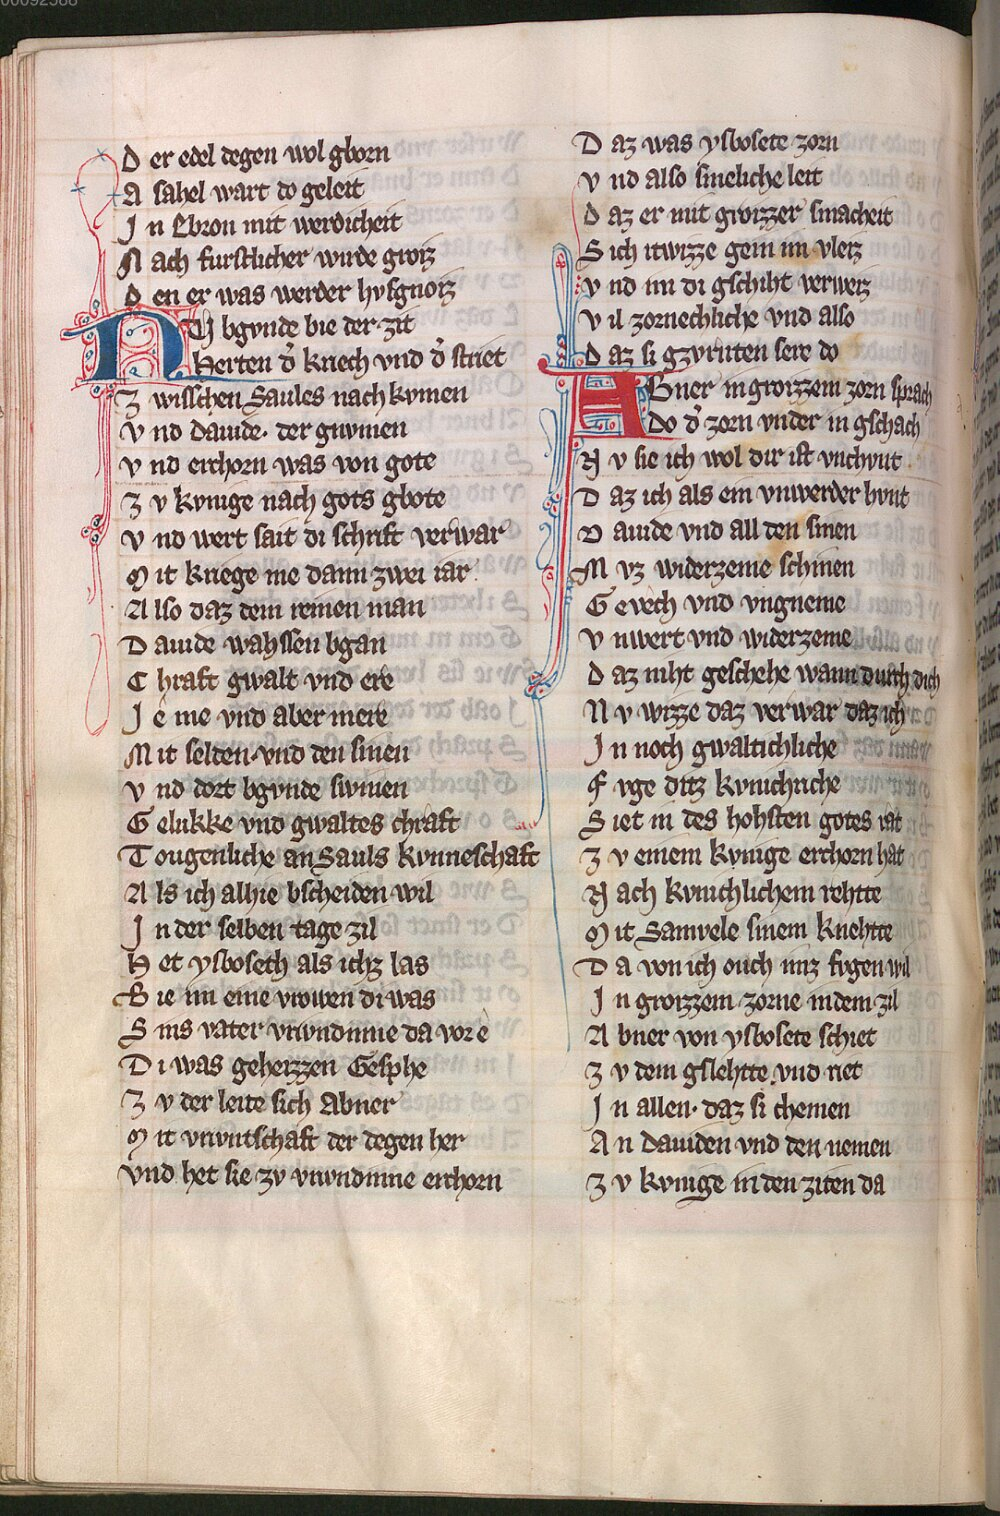 00092588
D er edel degen wol gborn
A sahel wart do geleit
J n Ebron mit werdicheit
N ach furstlicher wirde groiz
D en er was werder hvsgnoiz
NV bgvnde bie der zit
Herten d̾ kriech vnd d̾ striet
Z wisschen Saules nachkvmen
V nd Dauide· der gnvmen
V nd erchorn was von gote
Z v kvnige nach gots gbote
V nd wert sait di schrift verwar
M it kriege me dann zwei iar
A lso daz dem reinen man
D auide wahssen bgan
C hraft gwalt vnd ere
J e me vnd aber mere
M it selden vnd den sinen
V nd dort bgvnde swinen
G elukke vnd gwaltes chraft
T ougenliche an Sauls kvnneschaft
A ls ich alhie bscheiden wil
J n der selben tage zil
H et ysboseth als ichz las
B ie im eine vrowen di was
S ins vater vrivndinne da vor e
D i was geheizzen Gesphe
Z v der leite sich Abner
M it vrivntschaft der degen her
Vnd het sie zv vrivndinne erchorn
D az was ysbosete zorn
V nd also smeliche leit
D az er mit groizzer smacheit
S ich itwizze gein im vleiz
V nd im di gschiht verweiz
V il zornechliche vnd also
D az si gzvrnten sere do
ABner in groizzem zorn sprach
Do d̾ zorn vnder in gschach
N v sie ich wol dir ist vnchvnt
D az ich als ein vnwerder hvnt
D auide vnd all den sinen
M vz widerzeme schinen
G evech vnd vngneme
V nwert vnd widerzeme
D az niht geschehe wann durch dich
N v wizze daz verwar daz ich
J n noch gwaltichliche
F vge ditz kvnichriche
S iet in des hohsten gotes rat
Z v einem kvnige erchorn hat
N ach kvnichlichem rehtte
M it Samvele sinem knehtte
D a von ich ouch imz fvgen wil
J n groizzem zorne in dem zil
A bner von ysbosete schiet
Z v dem gslehtte vnd riet
J n allen· daz si chemen
A n Dauiden vnd den nemen
Z v kvnige in den ziten da